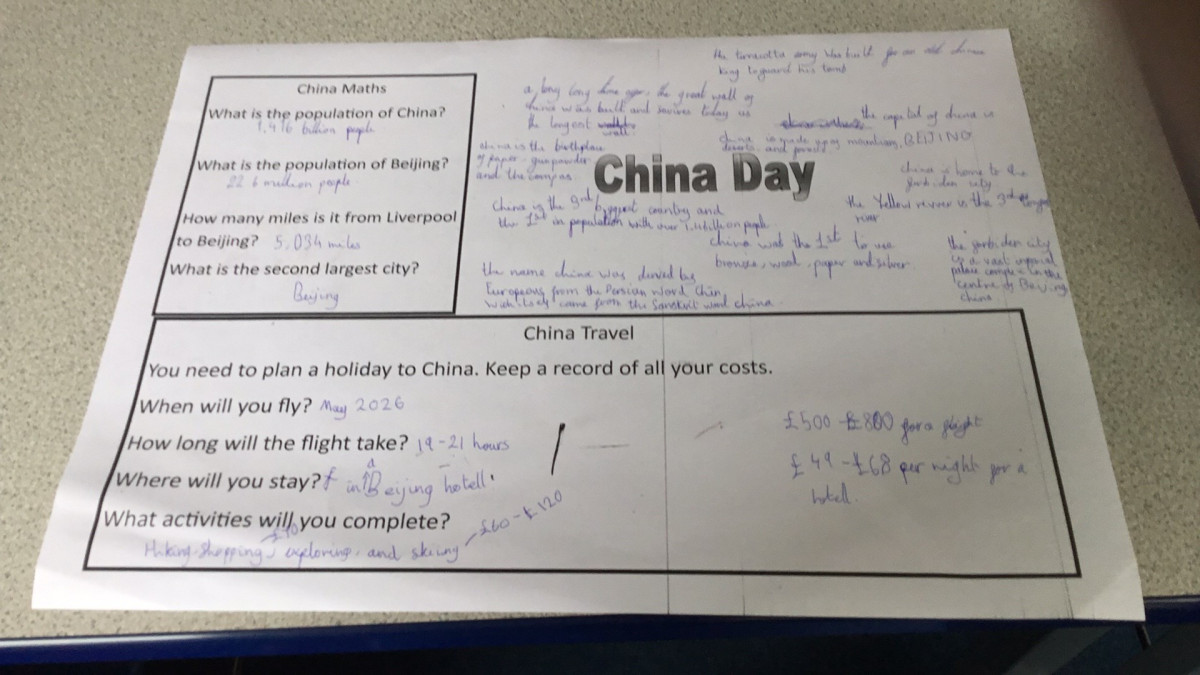 China Maths
What is the population of China?
1.416 billion people
What is the population of Beijing?
22.6 million people
How many miles is it from Liverpool
to Beijing? 5,034 miles
What is the second largest city?
Beijing
the terracotta army was built for an old chinese
king to guard his tomb
a long long time ago, the great wall of
china was built and today is
the longest wall
the capital of china is
BEIJING
china is made up of mountains,
deserts and
china is the birthplace
of paper, gunpowder
and the compas
China Day
china is home to the
forbiden city
China is the 3rd biggest country and
the 1st in population with over 1.4 billion people
the Yellow revver is the 3rd longest
river
china was the 1st to use
bronze, wood, paper and silver.
the forbiden city
is a vast imperial
palace complex in the
centre of Beijing
china
the name china was derived by
Europeans from the Persian word Chin,
came from the Sanskrit word china.
China Travel
You need to plan a holiday to China. Keep a record of all your costs.
When will you fly? May 2026
How long will the flight take? 19-21 hours
Where will you stay? in a Beijing hotell.
What activities will you complete?
Hiking, shopping, exploring, and skiing
£60-£120
£500-£800 for a flight
£49-£68 per night for a
hotell.